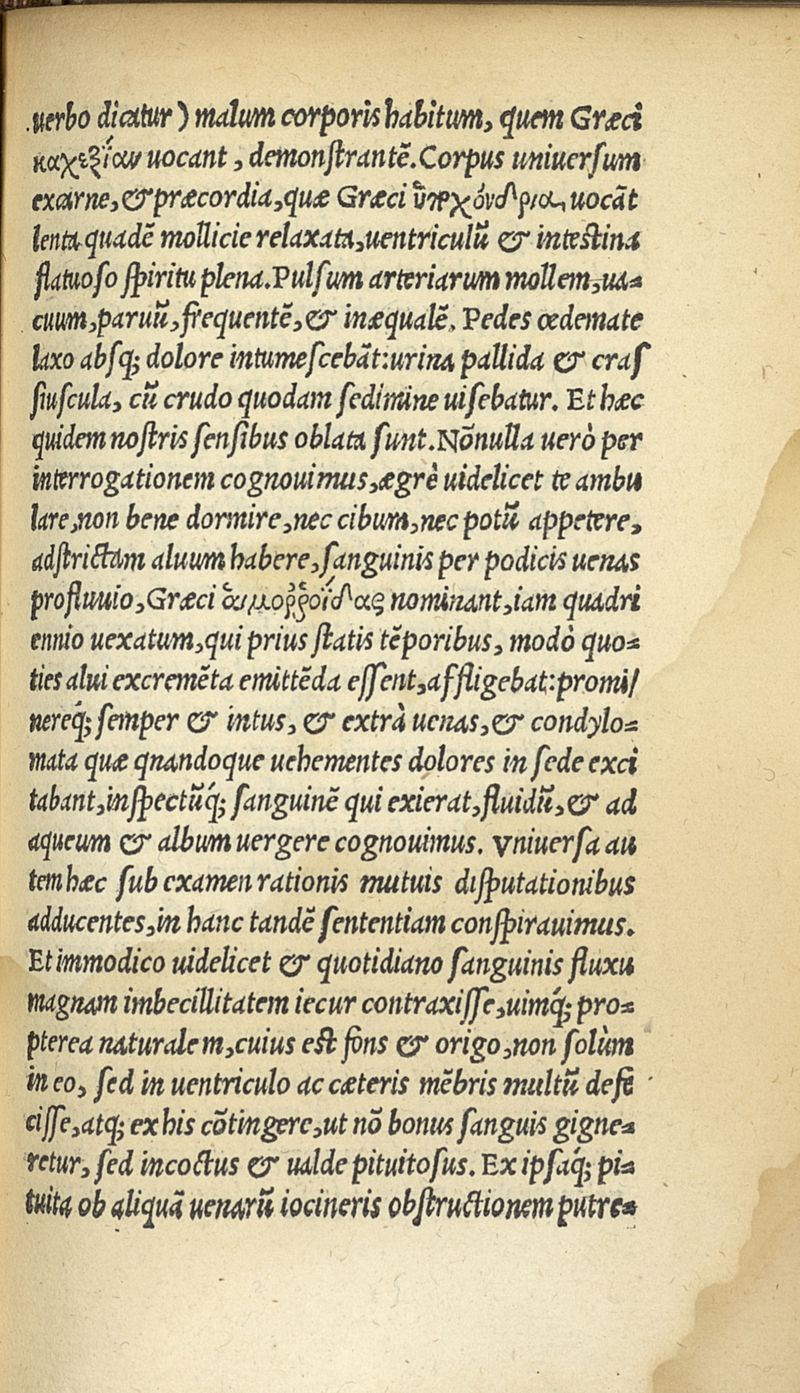 uerbo dicatur) malum corporis habitum, quem Græci
καχεξίαν uocant, demonſtrantē. Corpus uniuerſum
excarne, & præcordia, quæ Græci ὑποχόνδρια, uocāt
lenta quadē mollicie relaxata, uentriculū & inteſtina
flatuoſo ſpiritu plena. Pulſum arteriarum mollem, ua⸗
cuum, paruū, frequentē, & inæqualē. Pedes œdemate
laxo abſq; dolore intumeſcebāt: urina pallida & craſ
ſiuſcula, cū crudo quodam ſedimine uiſebatur. Et hæc
quidem noſtris ſenſibus oblata ſunt. Nōnulla uerò per
interrogationem cognouimus, ægrè uidelicet te ambu
lare, non bene dormire, nec cibum, nec potū appetere,
adſtrictam aluum habere, ſanguinis per podicis uenas
profluuio, Græci αἱμοῤῥοΐδας nominant, iam quadri
ennio uexatum, qui prius ſtatis tēporibus, modò quo⸗
ties alui excremēta emittēda eſſent, affligebat: promi/
nereq́; ſemper & intus, & extrà uenas, & condylo⸗
mata quæ qnandoque uehementes dolores in ſede exci
tabant, inſpectūq́; ſanguinē qui exierat, fluidū, & ad
aqueum & album uergere cognouimus. Vniuerſa au
tem hæc ſub examen rationis mutuis diſputationibus
adducentes, in hanc tandē ſententiam conſpirauimus.
Et immodico uidelicet & quotidiano ſanguinis fluxu
magnam imbecillitatem iecur contraxiſſe, uimq́; pro⸗
pterea naturalem, cuius eſt fons & origo, non ſolùm
in eo, ſed in uentriculo ac cæteris mēbris multū defe
ciſſe, atq; ex his cōtingere, ut nō bonus ſanguis gigne⸗
retur, ſed incoctus & ualde pituitoſus. Ex ipſaq́; pi⸗
tuita ob aliquā uenarū iocineris obſtructionem putre⸗